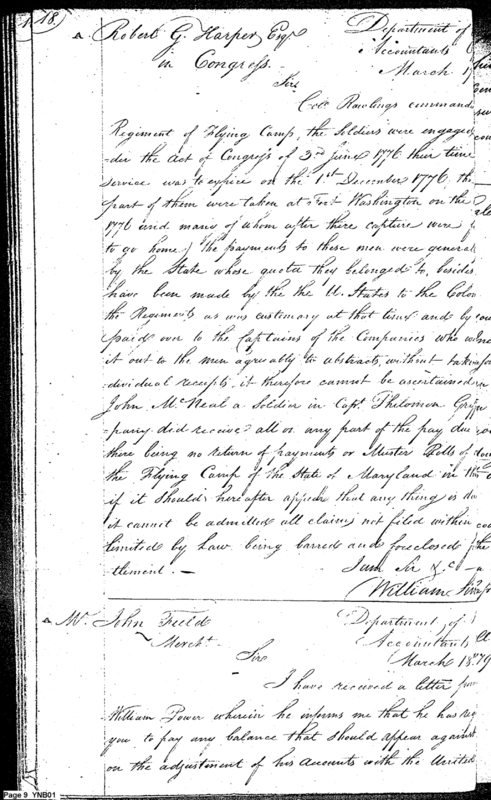 18)
Robert G. Harper Esqr
in Congress.
Department of
Accountants
March
Sir
Colo. Rawlings command
Regiment of Flying Camp, the Soldiers were engaged
-der the Act of Congress of 3rd June 1776 their time
service was to expire on the 1st December 1776, the
part of them were taken at Fort Washington on the
1776 and many of whom after there capture were
to go home) the payments to these men were general
by the State whose quota they belonged to, besides
have been made by the the U. States to the Colon
the Regiments as was customary at that time and by
paid over to the Captains of the Companies who
it out to the men agreably to abstracts, without takin
-dividual receipts, it therefore cannot be ascertained
John McNeal a Soldier in Capt. Philemon Grif
-pany did receive all or any part of the pay due
there being no return of payments or Muster Rolls of
the Flying Camp of the State of Maryland in
if it should hereafter appear that any thing is du
it cannot be admitted all claims not filed within
limited by Law being barred and foreclosed
tlement. —
I am Sir &c
William Sim
Mr. John Field
Mercht.
Department of
Accountants
March 18th 179
Sir
I have received a letter
William Power wherein he informs me that he has req
you to pay any balance that should appear against
on the adjustment of his accounts with the United
Page 9 YNB01